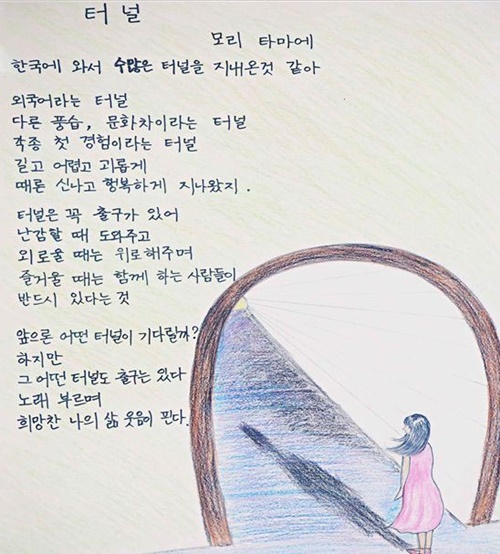 터널
모리 타마에
한국에 와서 수많은 터널을 지내온것 같아
외국어라는 터널
다른 풍습, 문화차이라는 터널
각종 첫 경험이라는 터널
길고 어렵고 괴롭게
때론 신나고 행복하게 지나왔지.
터널은 꼭 출구가 있어
난감할 때 도와주고
외로울 때는 위로해주며
즐거울 때는 함께 하는 사람들이
반드시 있다는 것
앞으론 어떤 터널이 기다릴까?
하지만
그 어떤 터널도 출구는 있다
노래 부르며
희망찬 나의 삶 웃음이 핀다.